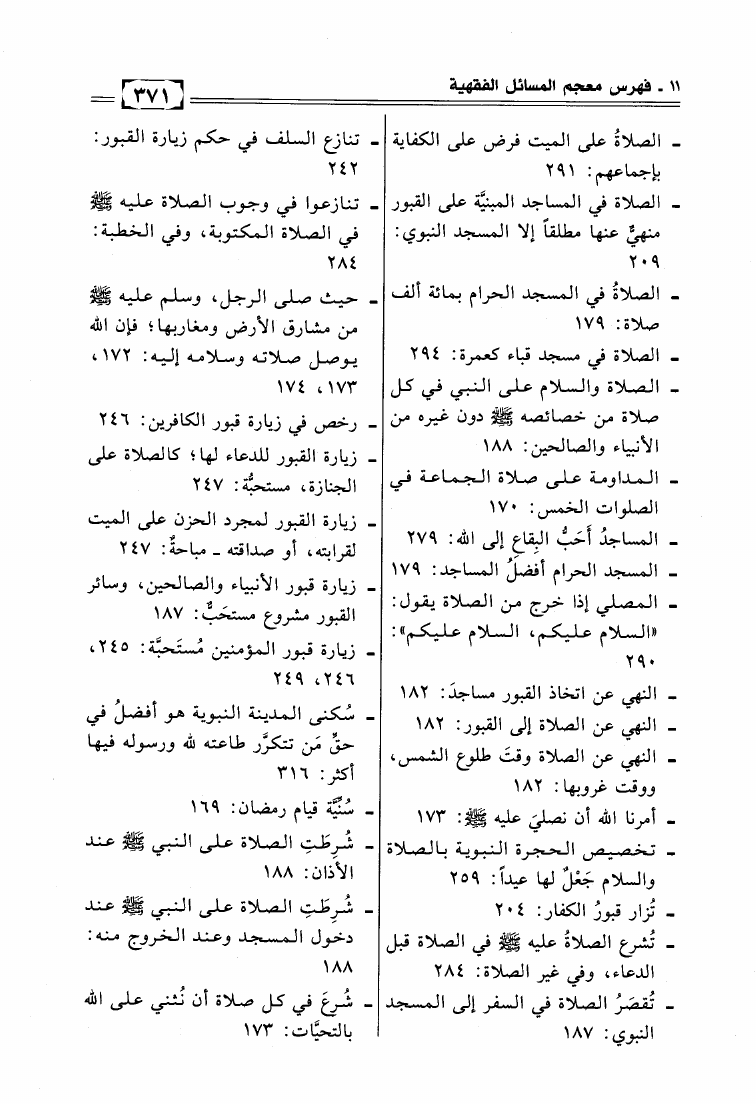 ١١ - فهرس معجم المسائل الفقهية
٣٧١
- الصلاةُ على الميت فرض على الكفاية
بإجماعهم: ٢٩١
- الصلاة في المساجد المبنيَّة على القبور
منهيٌّ عنها مطلقاً إلا المسجد النبوي:
٢٠٩
- الصلاةُ في المسجد الحرام بمائة ألف
صلاة: ١٧٩
- الصلاة في مسجد قباء كعمرة: ٢٩٤
- الصلاة والسلام على النبي في كل
صلاة من خصائصه ﷺ دون غيره من
الأنبياء والصالحين: ١٨٨
- المداومة على صلاة الجماعة في
الصلوات الخمس: ١٧٠
- المساجدُ أَحَبُّ البِقاعِ إلى الله: ٢٧٩
- المسجد الحرام أفضلُ المساجد: ١٧٩
- المصلي إذا خرج من الصلاة يقول:
«السلام عليكم، السلام عليكم»:
٢٩٠
- النهي عن اتخاذ القبور مساجدَ: ١٨٢
- النهي عن الصلاة إلى القبور: ١٨٢
- النهي عن الصلاة وقتَ طلوع الشمس،
ووقت غروبها: ١٨٢
- أمرنا الله أن نصليَ عليه ﷺ: ١٧٣
- تخصيص الحجرة النبوية بالصلاة
والسلام جَعْلٌ لها عيداً: ٢٥٩
- تُزار قبورُ الكفار: ٢٠٤
- تُشرع الصلاةُ عليه ﷺ في الصلاة قبل
الدعاء، وفي غير الصلاة: ٢٨٤
- تُقصَرُ الصلاة في السفر إلى المسجد
النبوي: ١٨٧
- تنازع السلف في حكم زيارة القبور:
٢٤٢
- تنازعوا في وجوب الصلاة عليه ﷺ
في الصلاة المكتوبة، وفي الخطبة:
٢٨٤
- حيث صلى الرجل، وسلم عليه ﷺ
من مشارق الأرض ومغاربها؛ فإن الله
يوصل صلاته وسلامه إليه: ١٧٢،
١٧٣، ١٧٤
- رخص في زيارة قبور الكافرين: ٢٤٦
- زيارة القبور للدعاء لها؛ كالصلاة على
الجنازة، مستحبَّة: ٢٤٧
- زيارة القبور لمجرد الحزن على الميت
لقرابته، أو صداقته - مباحةٌ: ٢٤٧
- زيارة قبور الأنبياء والصالحين، وسائر
القبور مشروع مستحَبٌّ: ١٨٧
- زيارة قبور المؤمنين مُستَحبَّة: ٢٤٥،
٢٤٦، ٢٤٩
- سُكنى المدينة النبوية هو أفضلُ في
حقِّ مَن تتكرَّر طاعته لله ورسوله فيها
أكثر: ٣١٦
- سُنِّيَّة قيام رمضان: ١٦٩
- شُرِطَتِ الصلاة على النبي ﷺ عند
الأذان: ١٨٨
- شُرِطَتِ الصلاة على النبي ﷺ عند
دخول المسجد وعند الخروج منه:
١٨٨
- شُرِعَ في كل صلاة أن نُثني على الله
بالتحيَّات: ١٧٣